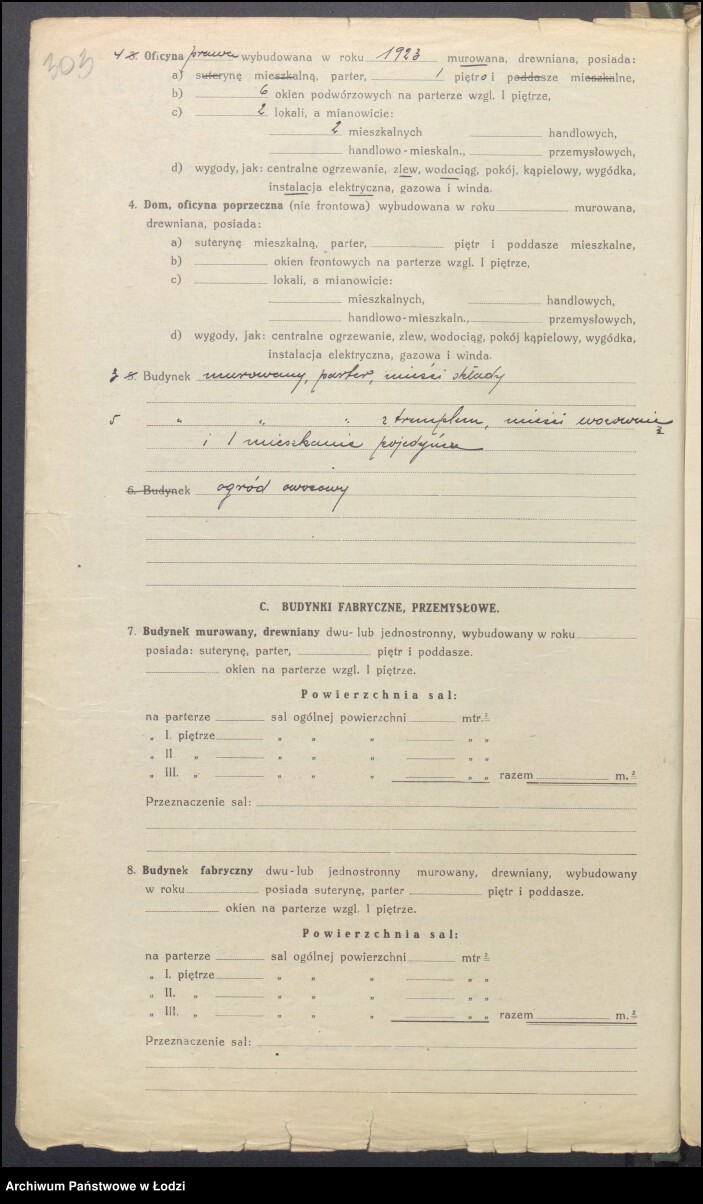 303
4 8. Oficyna prawa wybudowana w roku 1923 murowana, drewniana, posiada:
a) suterynę mieszkalną, parter, 1 piętro i poddasze mieszkalne,
b) 6 okien podwórzowych na parterze wzgl. I piętrze,
c) 2 lokali, a mianowicie:
2 mieszkalnych handlowych,
handlowo-mieskaln., przemysłowych,
d) wygody, jak: centralne ogrzewanie, zlew, wodociąg, pokój, kąpielowy, wygódka,
instalacja elektryczna, gazowa i winda.
4. Dom, oficyna poprzeczna (nie frontowa) wybudowana w roku murowana,
drewniana, posiada:
a) suterynę mieszkalną, parter, piętr i poddasze mieszkalne,
b) okien frontowych na parterze wzgl. I piętrze,
c) lokali, a mianowicie:
mieszkalnych, handlowych,
handlowo-mieszkaln., przemysłowych,
d) wygody, jak: centralne ogrzewanie, zlew, wodociąg, pokój kąpielowy, wygódka,
instalacja elektryczna, gazowa i winda.
3 8. Budynek murowany, parter, mieści składy
5 " " " z tremplem, mieści wozownię
i 1 mieszkanie pojedyńcze
6. Budynek ogród owocowy
C. BUDYNKI FABRYCZNE, PRZEMYSŁOWE.
7. Budynek murowany, drewniany dwu- lub jednostronny, wybudowany w roku
posiada: suterynę, parter, piętr i poddasze.
okien na parterze wzgl. I piętrze.
Powierzchnia sal:
na parterze sal ogólnej powierzchni mtr.²
„ I. piętrze „ „ „ „ „
„ II „ „ „ „ „ „
„ III. „ „ „ „ „ „ razem m.²
Przeznaczenie sal:
8. Budynek fabryczny dwu-lub jednostronny murowany, drewniany, wybudowany
w roku posiada suterynę, parter piętr i poddasze.
okien na parterze wzgl. I piętrze.
Powierzchnia sal:
na parterze sal ogólnej powierzchni mtr²
„ I. piętrze „ „ „ „ „
„ II. „ „ „ „ „ „
„ III. „ „ „ „ „ „ razem m.²
Przeznaczenie sal:
Archiwum Państwowe w Łodzi